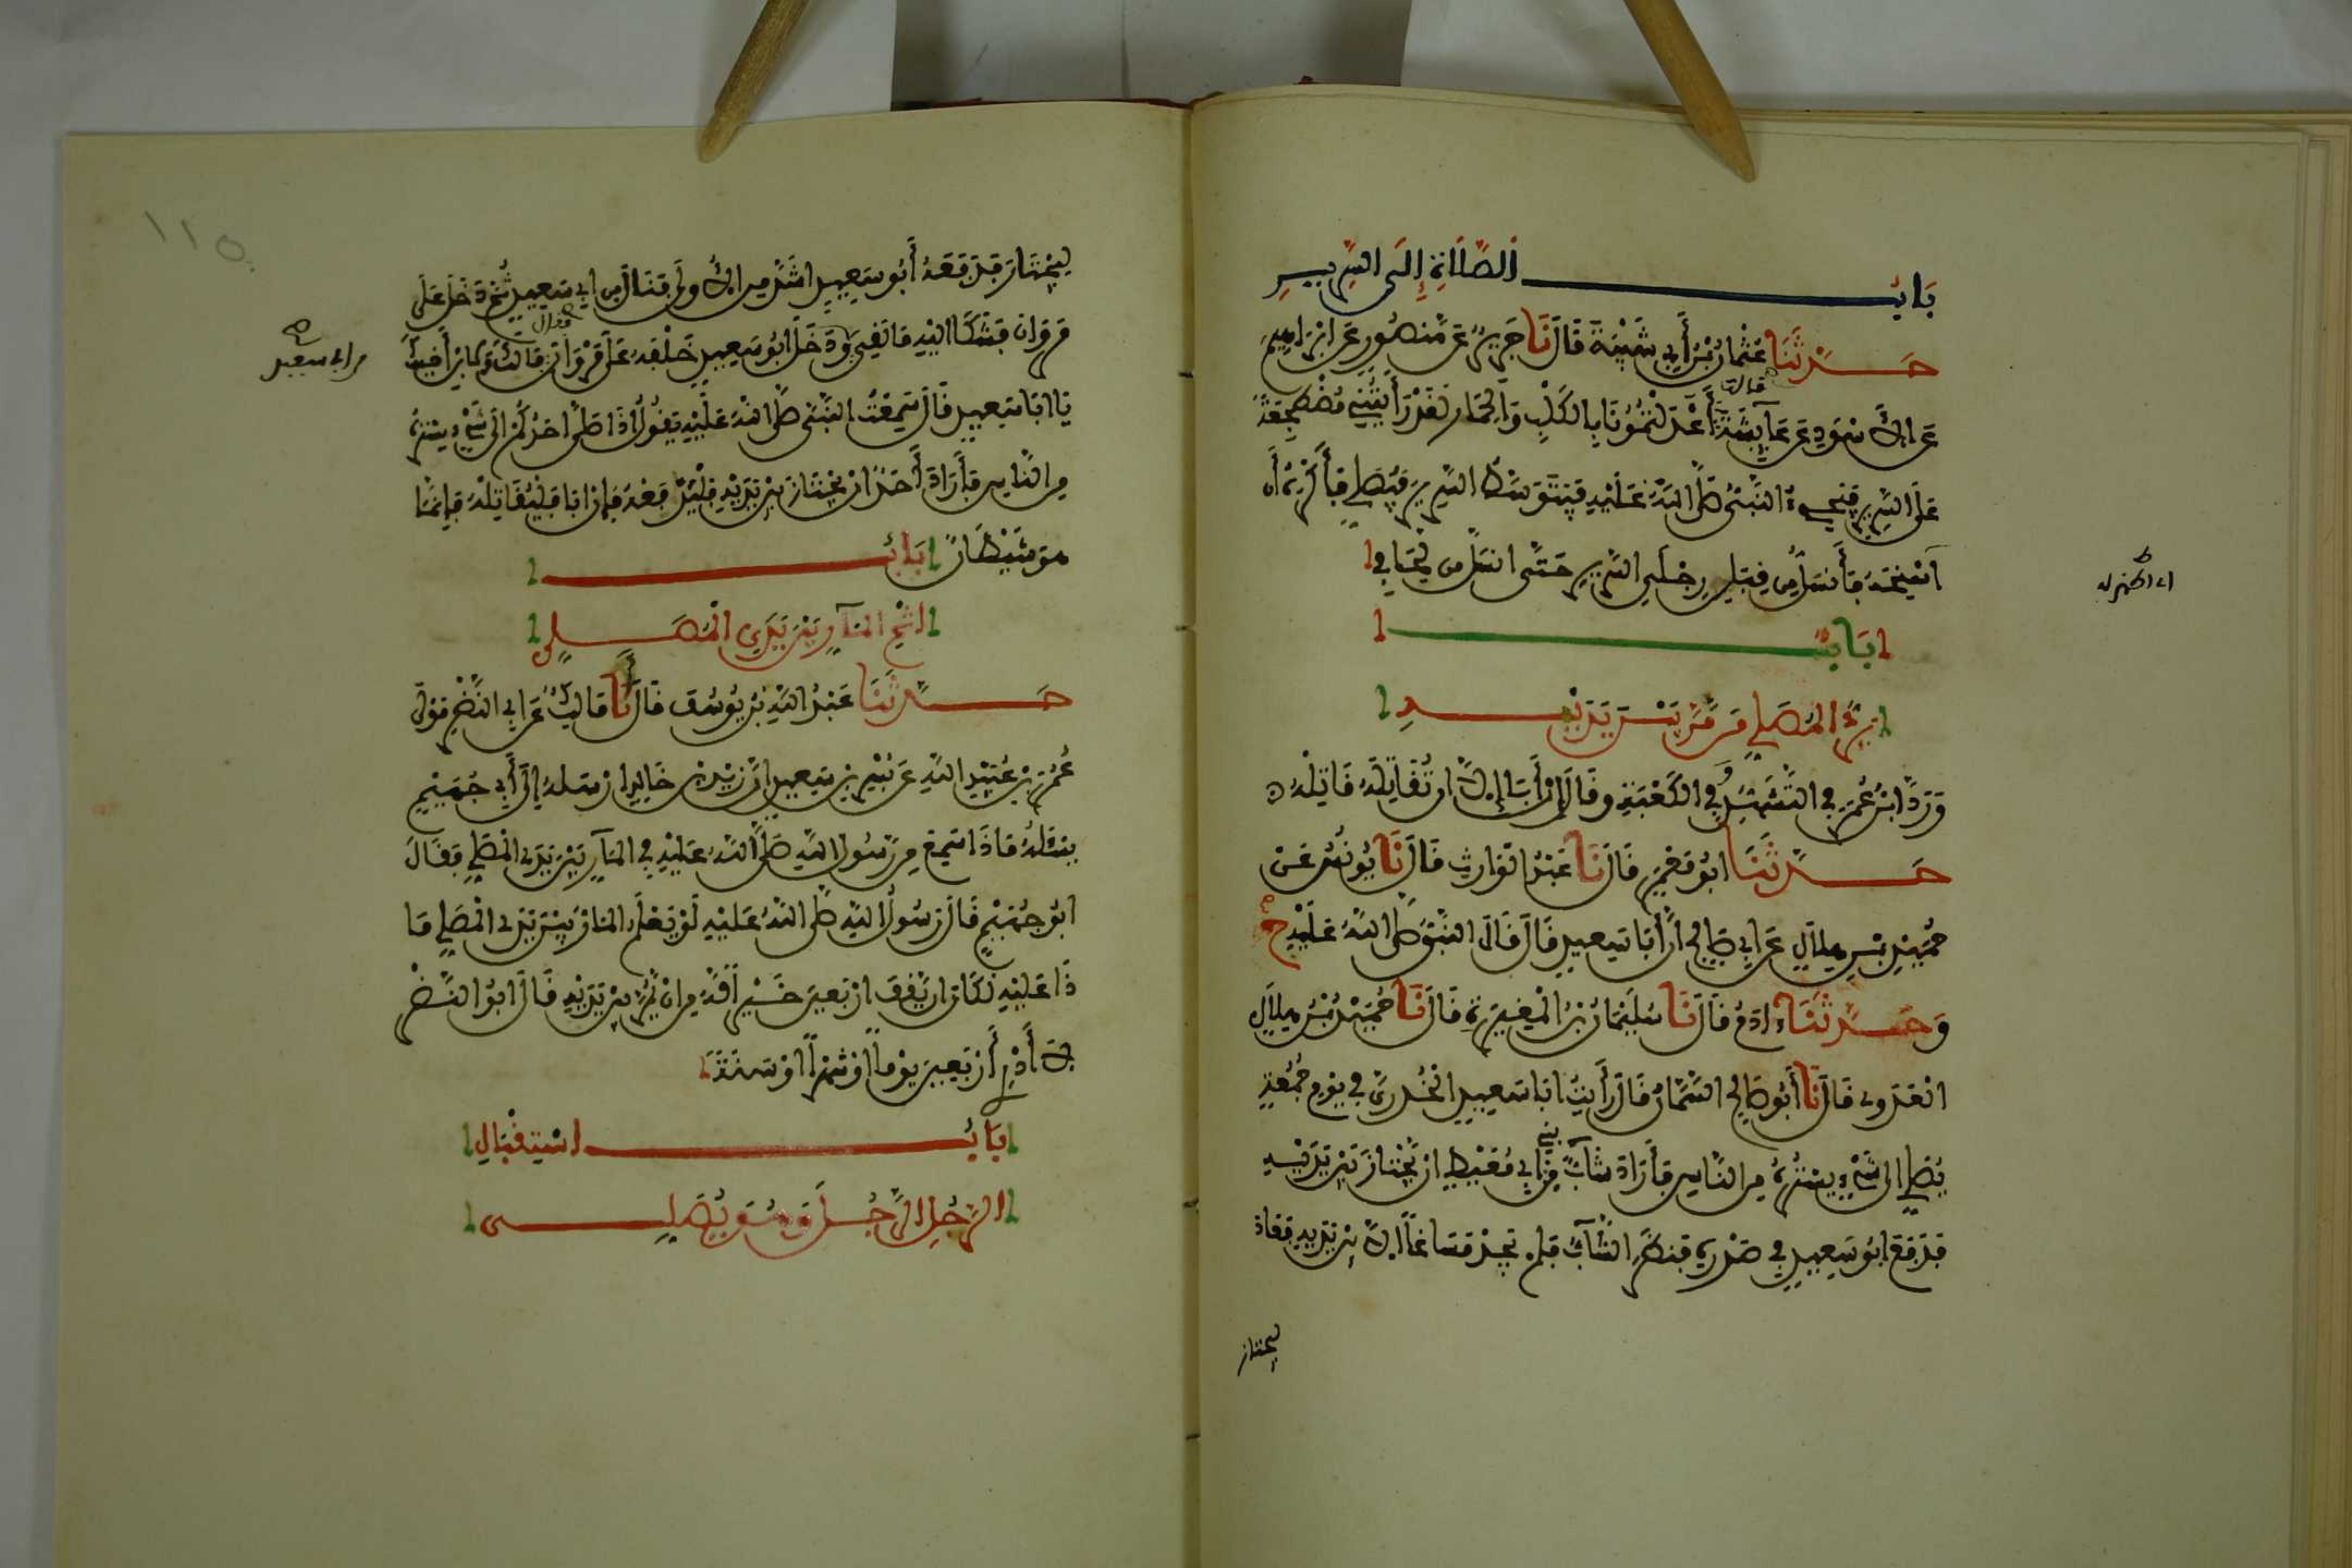 بَابُ الصَّلَاةِ إِلَى السَّرِيرِ
حَدَّثَنَا عُثْمَانُ بْنُ أَبِي شَيْبَةَ قَالَ نَا جَرِيرٌ عَن مَّنصُورٍ عَن ابْرَاهِيمَ
عَن الاسْوَدِ عَن عَائِشَةَ قَالَتْ أَعَدَلْتُمُونَا بِالكَلْبِ وَالحِمَارِ لَقَدْ رَأَيْتُنِي مُضْطَجِعَةً
عَلَى السَّرِيرِ فَيَجِيءُ النَّبِيُّ صَلَّى اللَّهُ عَلَيْهِ فَيَتَوَسَّطُ السَّرِيرَ فَيُصَلِّي فَأَكْرَهُ أَن
اسْنَحَهُ فَأَنسَلُّ مِن قِبَلِ رِجْلَيِ السَّرِيرِ حَتَّى انسَلَّ مِن لِحَافِي
بَابٌ
يَرُدُّ المُصَلِّي مَن مَّرَّ بَيْنَ يَدَيْهِ
وَرَدَّ ابْنُ عُمَرَ فِي التَّشَهُّدِ وَفِي الكَعْبَةِ وَقَالَ إِنْ أَبَى إِلَّا ان تُقَاتِلَهُ قَاتِلْهُ
حَدَّثَنَا ابُو مَعْمَرٍ قَالَ نَا عَبْدُ الوَارِثِ قَالَ نَا يُونُسُ عَنْ
حُمَيْدِ بْنِ هِلَالٍ عَن ابِي صَالِحٍ انَّ أَبَا سَعِيدٍ قَالَ قَالَ النَّبِيُّ صَلَّى اللَّهُ عَلَيْهِ ح
وَحَدَّثَنَا ادَمُ قَالَ نَا سُلَيْمَانُ بْنُ المُغِيرَةِ قَالَ نَا حُمَيْدُ بْنُ هِلَالٍ
العَدَوِي قَالَ نَا أَبُو صَالِحٍ السَّمَّانُ قَالَ رَأَيْتُ ابَا سَعِيدٍ الخُدْرِيَّ فِي يَوْمِ جُمُعَةٍ
يُصَلِّي الَى شَيْءٍ يَسْتُرُهُ مِن النَّاسِ فَأَرَادَ شَابٌّ مِّن بَنِي أَبِي مُعَيْطٍ ان يَّجْتَازَ بَيْنَ يَدَيْهِ
فَدَفَعَ ابُو سَعِيدٍ فِي صَدْرِهِ فَنَظَرَ الشَّابُّ فَلَمْ يَجِدْ مَسَاغًا الَّا بَيْنَ يَدَيْهِ فَعَادَ
ليجتاز
١١٥
لِيَجْتَازَ فَدَفَعَهُ أَبُو سَعِيدٍ اشَدَّ مِن الاولَى فَنَالَ مِن ابِي سَعِيدٍ ثُمَّ دَخَلَ عَلَى
مَرْوَانَ فَشَكَا الَيْهِ مَا لَقِيَ وَدَخَلَ ابُو سَعِيدٍ خَلْفَهُ عَلَى مَرْوَانَ فَقَالَ مَا لَكَ وَلِابْنِ أَخِيكَ
من ابي سعيد
يَا ابَا سَعِيدٍ قَالَ سَمِعْتُ النَّبِيَّ صَلَّى اللَّهُ عَلَيْهِ يَقُولُ اذَا صَلَّى احَدُكُمُ الَى شَيْءٍ يَسْتُرُهُ
مِن النَّاسِ فَأَرَادَ أَحَدٌ ان يَّجْتَازَ بَيْنَ يَدَيْهِ فَلْيَدْفَعْهُ فَإِن ابَى فَلْيُقَاتِلْهُ فَإِنَّمَا
هُوَ شَيْطَانٌ بَابُ
اثْمِ المَارِّ بَيْنَ يَدَيِ المُصَلِّي
حَدَّثَنَا عَبْدُ اللَّهِ بْنُ يُوسُفَ قَالَ أَنَا مَالِكٌ عَن ابِي النَّضْرِ مَوْلَى
عُمَرَ بْنِ عُبَيْدِ اللَّهِ عَن بُسْرِ بْنِ سَعِيدٍ انَّ زَيْدَ بْنَ خَالِدٍ ارْسَلَهُ إِلَى أَبِي جُهَيْمٍ
يَسْئَلُهُ مَاذَا سَمِعَ مِن رَّسُولِ اللَّهِ صَلَّى اللَّهُ عَلَيْهِ فِي المَارِّ بَيْنَ يَدَيِ المُصَلِّي فَقَالَ
ابُو جُهَيْمٍ قَالَ رَسُولُ اللَّهِ صَلَّى اللَّهُ عَلَيْهِ لَوْ يَعْلَمُ المَارُّ بَيْنَ يَدَيِ المُصَلِّي مَا
ذَا عَلَيْهِ لَكَانَ ان يَّقِفَ ارْبَعِينَ خَيْرٌ لَّهُ مِن انْ يَّمُرَّ بَيْنَ يَدَيْهِ قَالَ ابُو النَّضْرِ
لَا أَدْرِي أَرْبَعِينَ يَوْمًا اوْ شَهْرًا اوْ سَنَةً
بَابُ اسْتِقْبَالِ
الرَّجُلِ الرَّجُلَ وَهُوَ يُصَلِّي